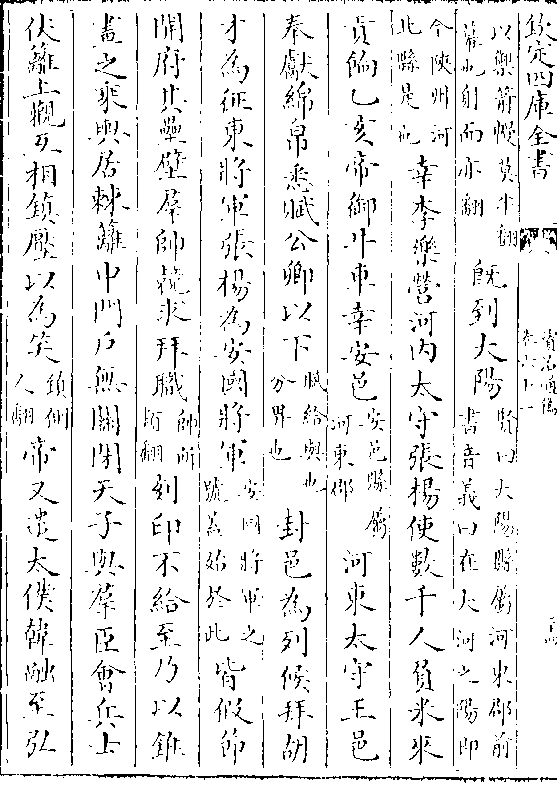 欽定四庫全書
資治通鑑
卷六十一
以禦箭幔莫半翻
羃也射而亦翻
既到大陽
賢曰大陽縣屬河東郡前
書音義曰在大河之陽即
今陜州河
北縣是也
幸李樂營河内太守張楊使數千人負米來
貢餉乙亥帝御牛車幸安邑
安邑縣屬
河東郡
河東太守王邑
奉獻綿帛悉賦公卿以下
賦給與也
分畀也
封邑為列侯拜胡
才為征東將軍張楊為安國將軍
安國將軍之
號葢始於此
皆假節
開府其壘壁羣帥競求拜職
帥所
類翻
刻印不給至乃以錐
畫之乘輿居棘籬中門戶無關閉天子與羣臣會兵士
伏籬上觀互相鎮壓以為笑
鎮側
人翻
帝又遣太僕韓融至弘